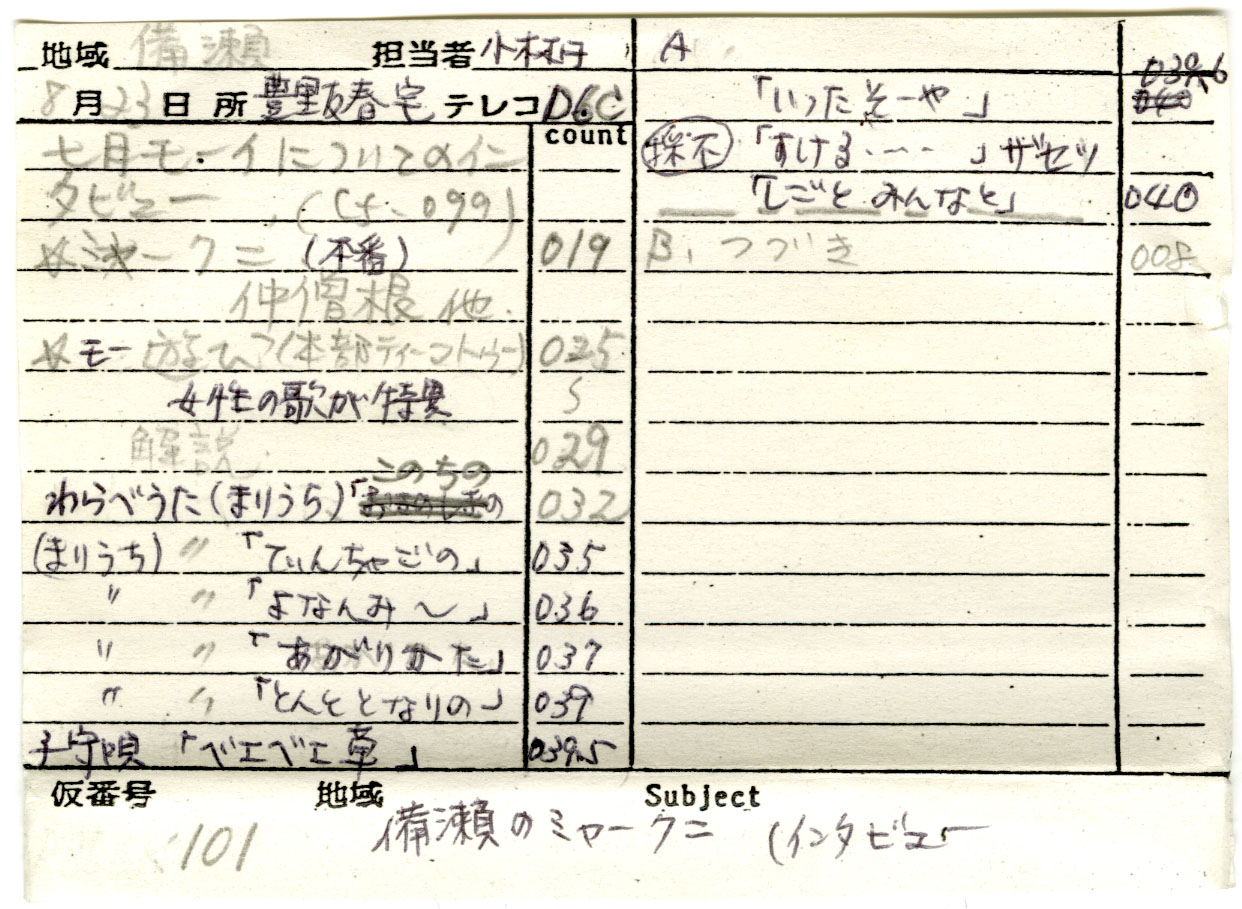 地域 備瀬 担当者 小林
8月23日 所 豊里友春宅 テレコ D6C
count
七月モーイについてのイン
タビュー (cf. 099)
ミャークニ (本番) 019
仲曽根 他.
モー遊び?(本部ティーントゥー) 025
女性の歌が特異 S
解説 029
このちの
わらべうた(まりうち)「 032
(まりうち) 〃 「てぃんちゃごの」 035
〃 〃 「よなんみ〜」 036
〃 〃 「あがりかた」 037
〃 〃 「とんととなりの」 039
子守唄 「ベエベエ草」 039.5
A
「いったぞーや」
採不 「すける・・・・」ザセツ
「しごと みんなと」 040
B, つづき 008
仮番号 地域 Subject
101 備瀬のミャークニ (インタビュー